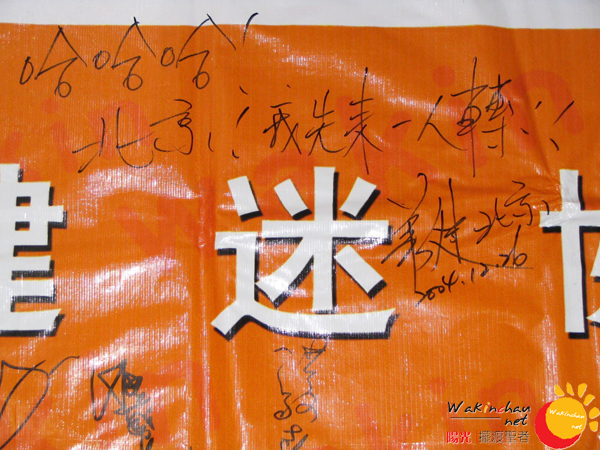 哈哈哈!
北京!! 我先来一人轉!!
迷
華健 北京
2004.12.26
Wakinchau
net
陽光
Wakinchau
net